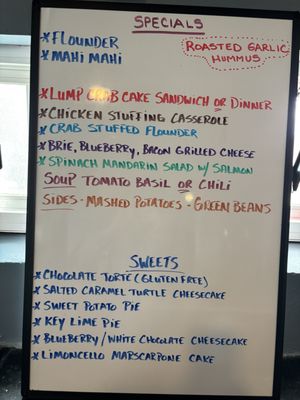 SPECIALS
* FLOUNDER
* MAHI MAHI
ROASTED GARLIC
HUMMUS
* LUMP CRAB CAKE SANDWICH OR DINNER
* CHICKEN STUFFING CASSEROLE
* CRAB STUFFED FLOUNDER
* BRIE, BLUEBERRY, BACON GRILLED CHEESE
* SPINACH MANDARIN SALAD W/ SALMON
SOUP TOMATO BASIL OR CHILI
SIDES - MASHED POTATOES - GREEN BEANS
SWEETS
* CHOCOLATE TORTE (GLUTEN FREE)
* SALTED CARAMEL TURTLE CHEESECAKE
* SWEET POTATO PIE
* KEY LIME PIE
* BLUEBERRY / WHITE CHOCOLATE CHEESECAKE
* LIMONCELLO MARSCARPONE CAKE